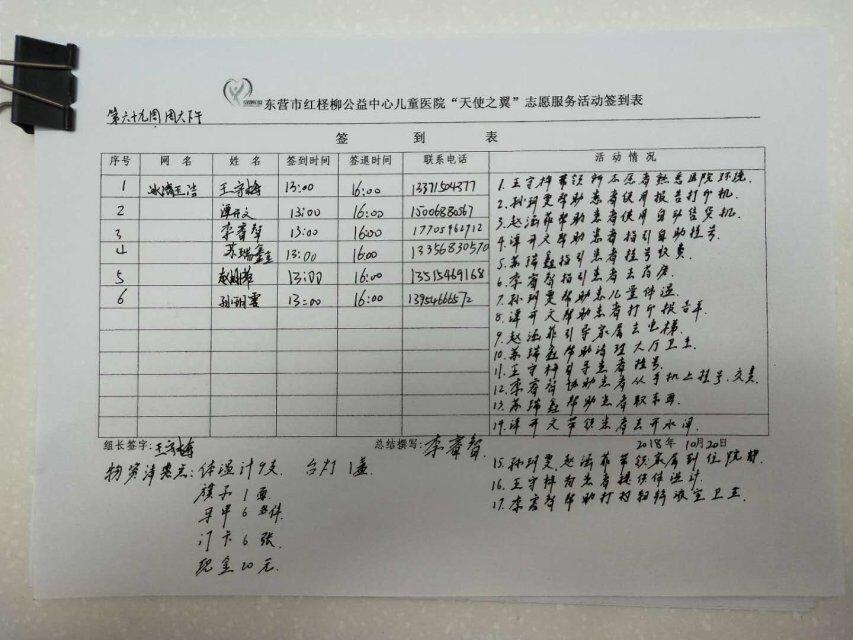 东营市红柽柳公益中心儿童医院“天使之翼”志愿服务活动签到表
第六十九周 周六下午
签 到 表
序号 网 名 姓 名 签到时间 签退时间 联系电话 活 动 情 况
1 13:00 16:00 13371504377
2 谭开文 13:00 16:00 15006888067
3 李睿智 13:00 16:00 17705462712
4 苏瑞鑫 13:00 16:00 13356830570
5 赵涵菲 13:00 16:00 13515469168
6 孙玥雯 13:00 16:00 13954666572
1. 王守梅带领所有志愿者熟悉医院环境.
2. 孙玥雯帮助患者使用报告打印机.
3. 赵涵菲帮助患者使用自助售货机.
4. 谭开文帮助患者指引自助挂号.
5. 苏瑞鑫指引患者挂号收费.
6. 李睿智指引患者去药房.
7. 孙玥雯帮助患儿量体温.
8. 谭开文帮助患者打印报告单.
9. 赵涵菲引导家属去电梯.
10. 苏瑞鑫帮助清理大厅卫生.
11. 王守梅引导患者挂号.
12. 李睿智协助患者从手机上挂号、交费.
13. 苏瑞鑫帮助患者取单
14. 谭开文带领患者去开水间.
组长签字: 王守梅 总结撰写: 李睿智 2018年 10月20日
15. 孙玥雯、赵涵菲带领家属到住院部.
16. 王守梅为患者提供体温计.
17. 李睿智帮助打扫 卫生.
物资清点: 体温计9支. 台灯1盏.
旗子1面.
马甲6件.
门卡6张.
现金20元.